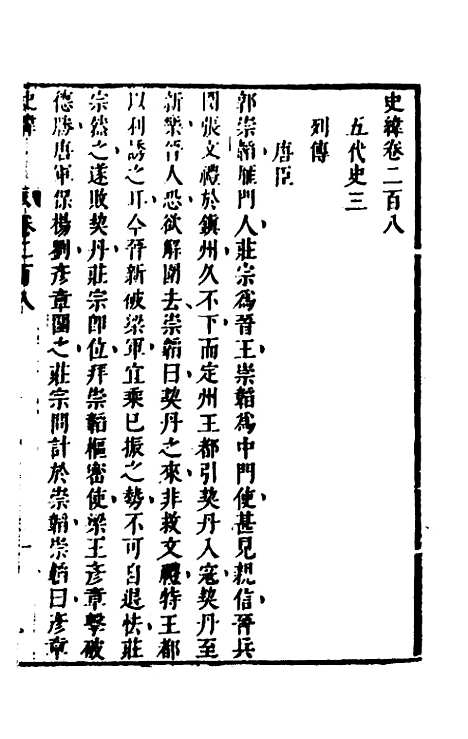 史緯卷二百八
五代史三
列傳
唐臣
郭崇韜雁門人莊宗爲晉王崇韜爲中門使甚見親信晉兵
圍張文禮於鎮州久不下而定州王都引契丹入寇契丹至
新樂晉人恐欲解圍去崇韜曰契丹之來非救文禮特王都
以利誘之耳今晉新破梁軍宜乘已振之勢不可自退怯莊
宗然之遂敗契丹莊宗卽位拜崇韜樞密使梁王彥章擊破
德勝唐軍保楊劉彥章圍之莊宗問計於崇韜崇韜曰彥章
史緯 卷二百八 一